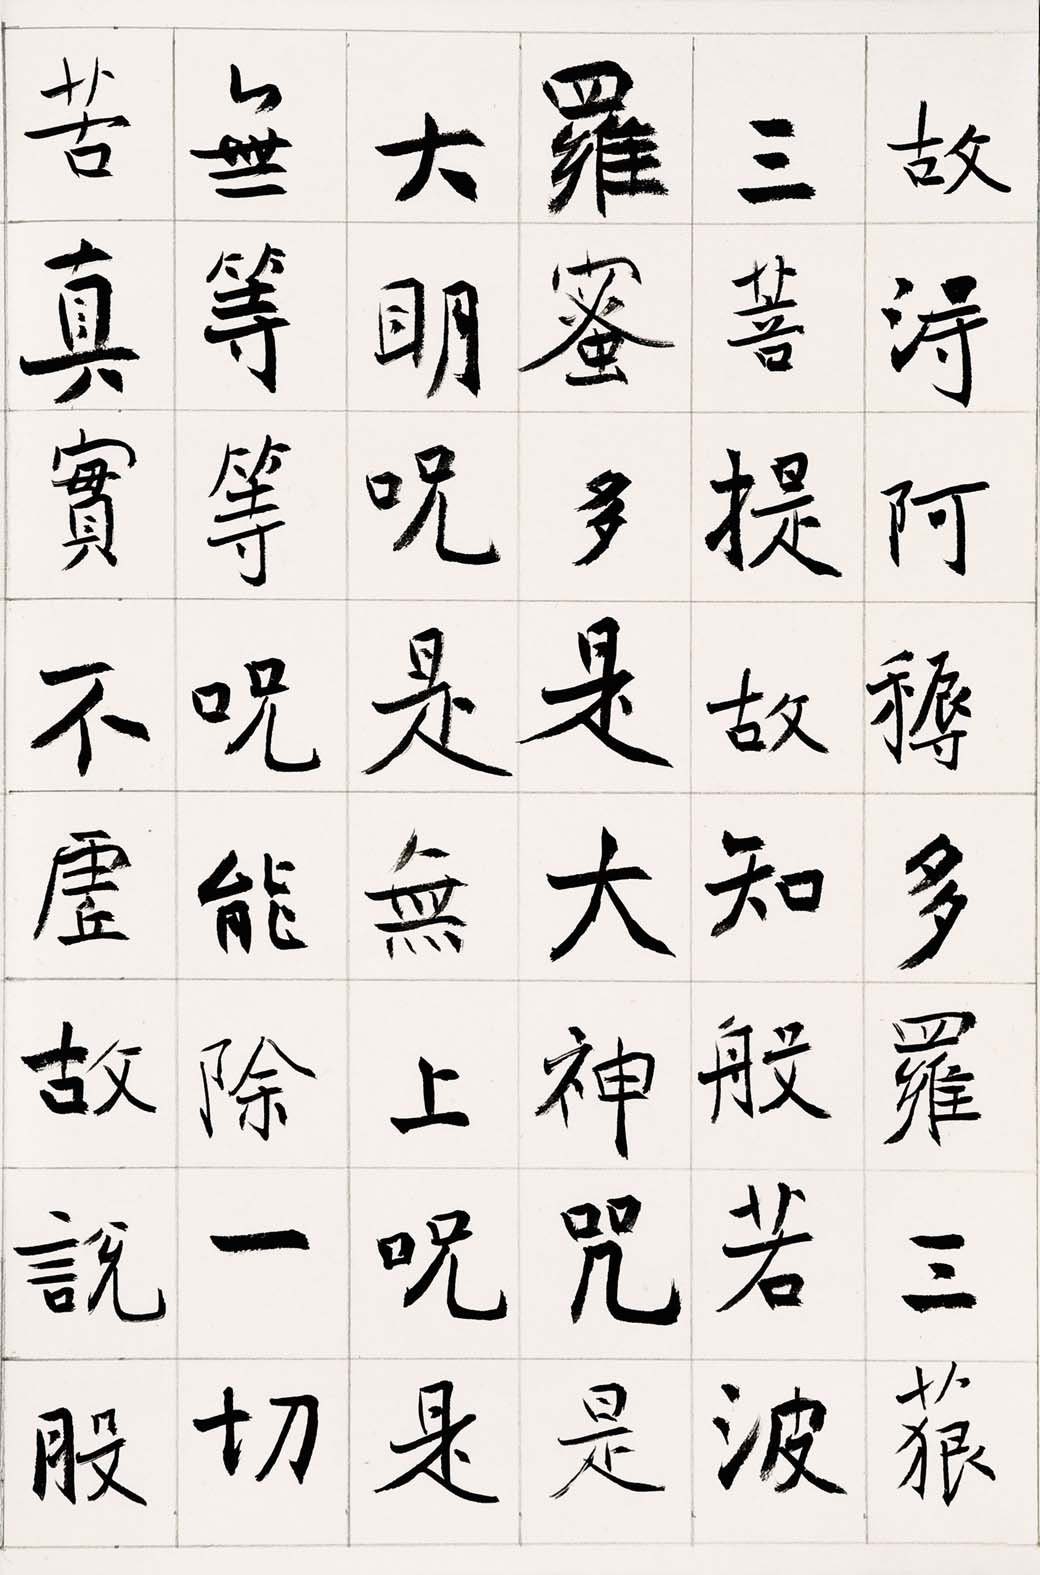 故得阿耨多羅三藐
三菩提故知般若波
羅蜜多是大神咒是
大明呪是無上呪是
無等等呪能除一切
苦真實不虛故說般